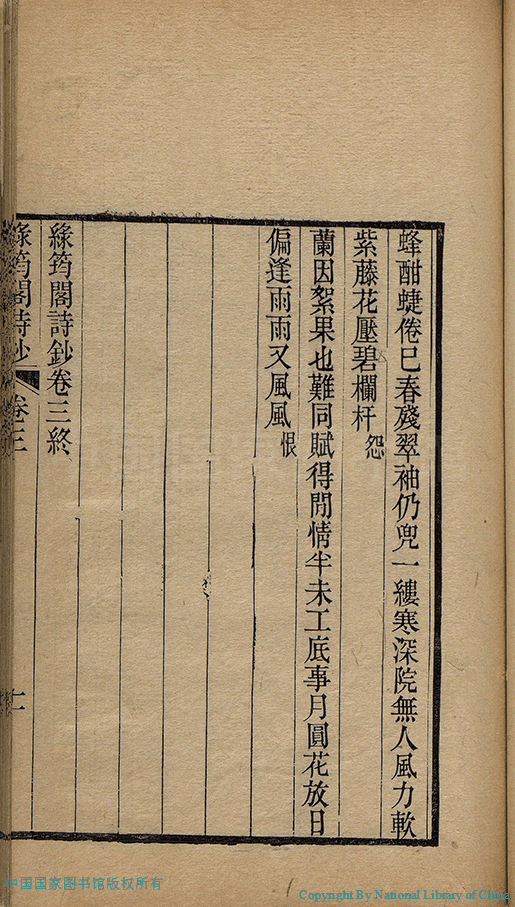 蜂酣蜨倦已春殘翠袖仍兜一縷寒深院無人風力軟
紫藤花壓碧欄杆怨
蘭因絮果也難同賦得閒情半未工底事月圓花放日
偏逢雨雨又風風恨
綠筠閣詩鈔卷三終
綠筠閣詩鈔 卷三
中国国家图书馆版权所有
Copyright By National Library of China